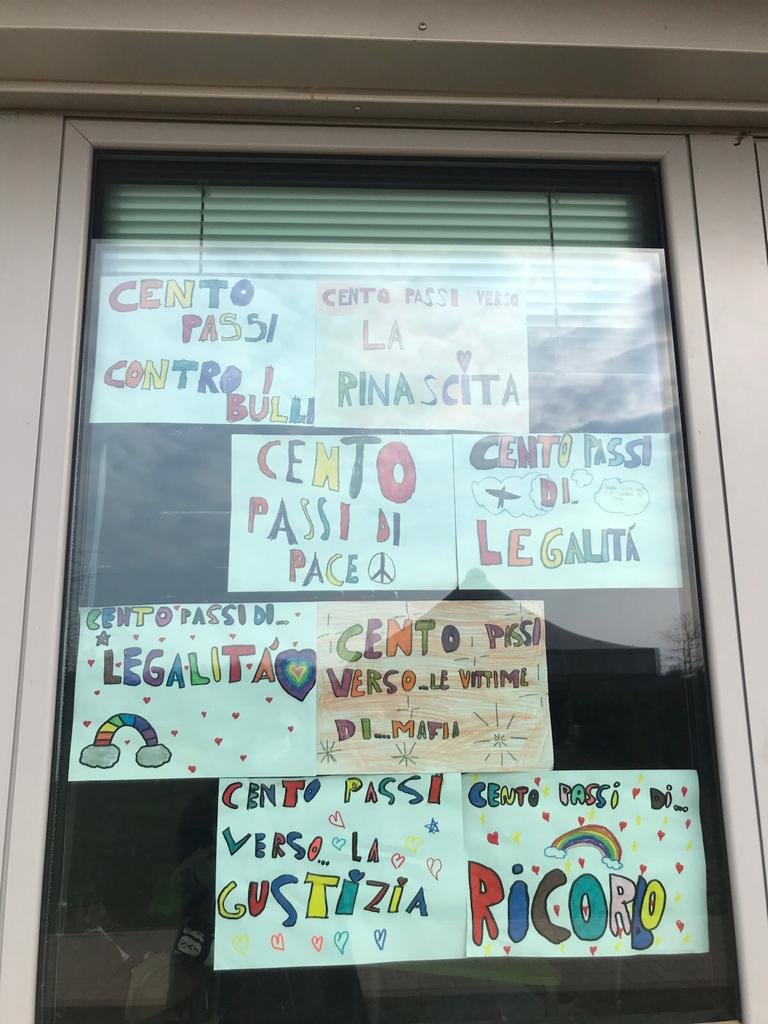 CENTO
PASSI
CONTRO I
BULLI
CENTO PASSI VERSO
LA
RINASCITA
CENTO
PASSI DI
PACE
CENTO PASSI
DI..
LEGALITÁ
CENTO PASSI DI...
LEGALITÁ
CENTO PASSI
VERSO...LE VITTIME
DI....MAFIA
CENTO PASSI
VERSO... LA
GUSTIZIA
CENTO PASSI DI...
RICORDO